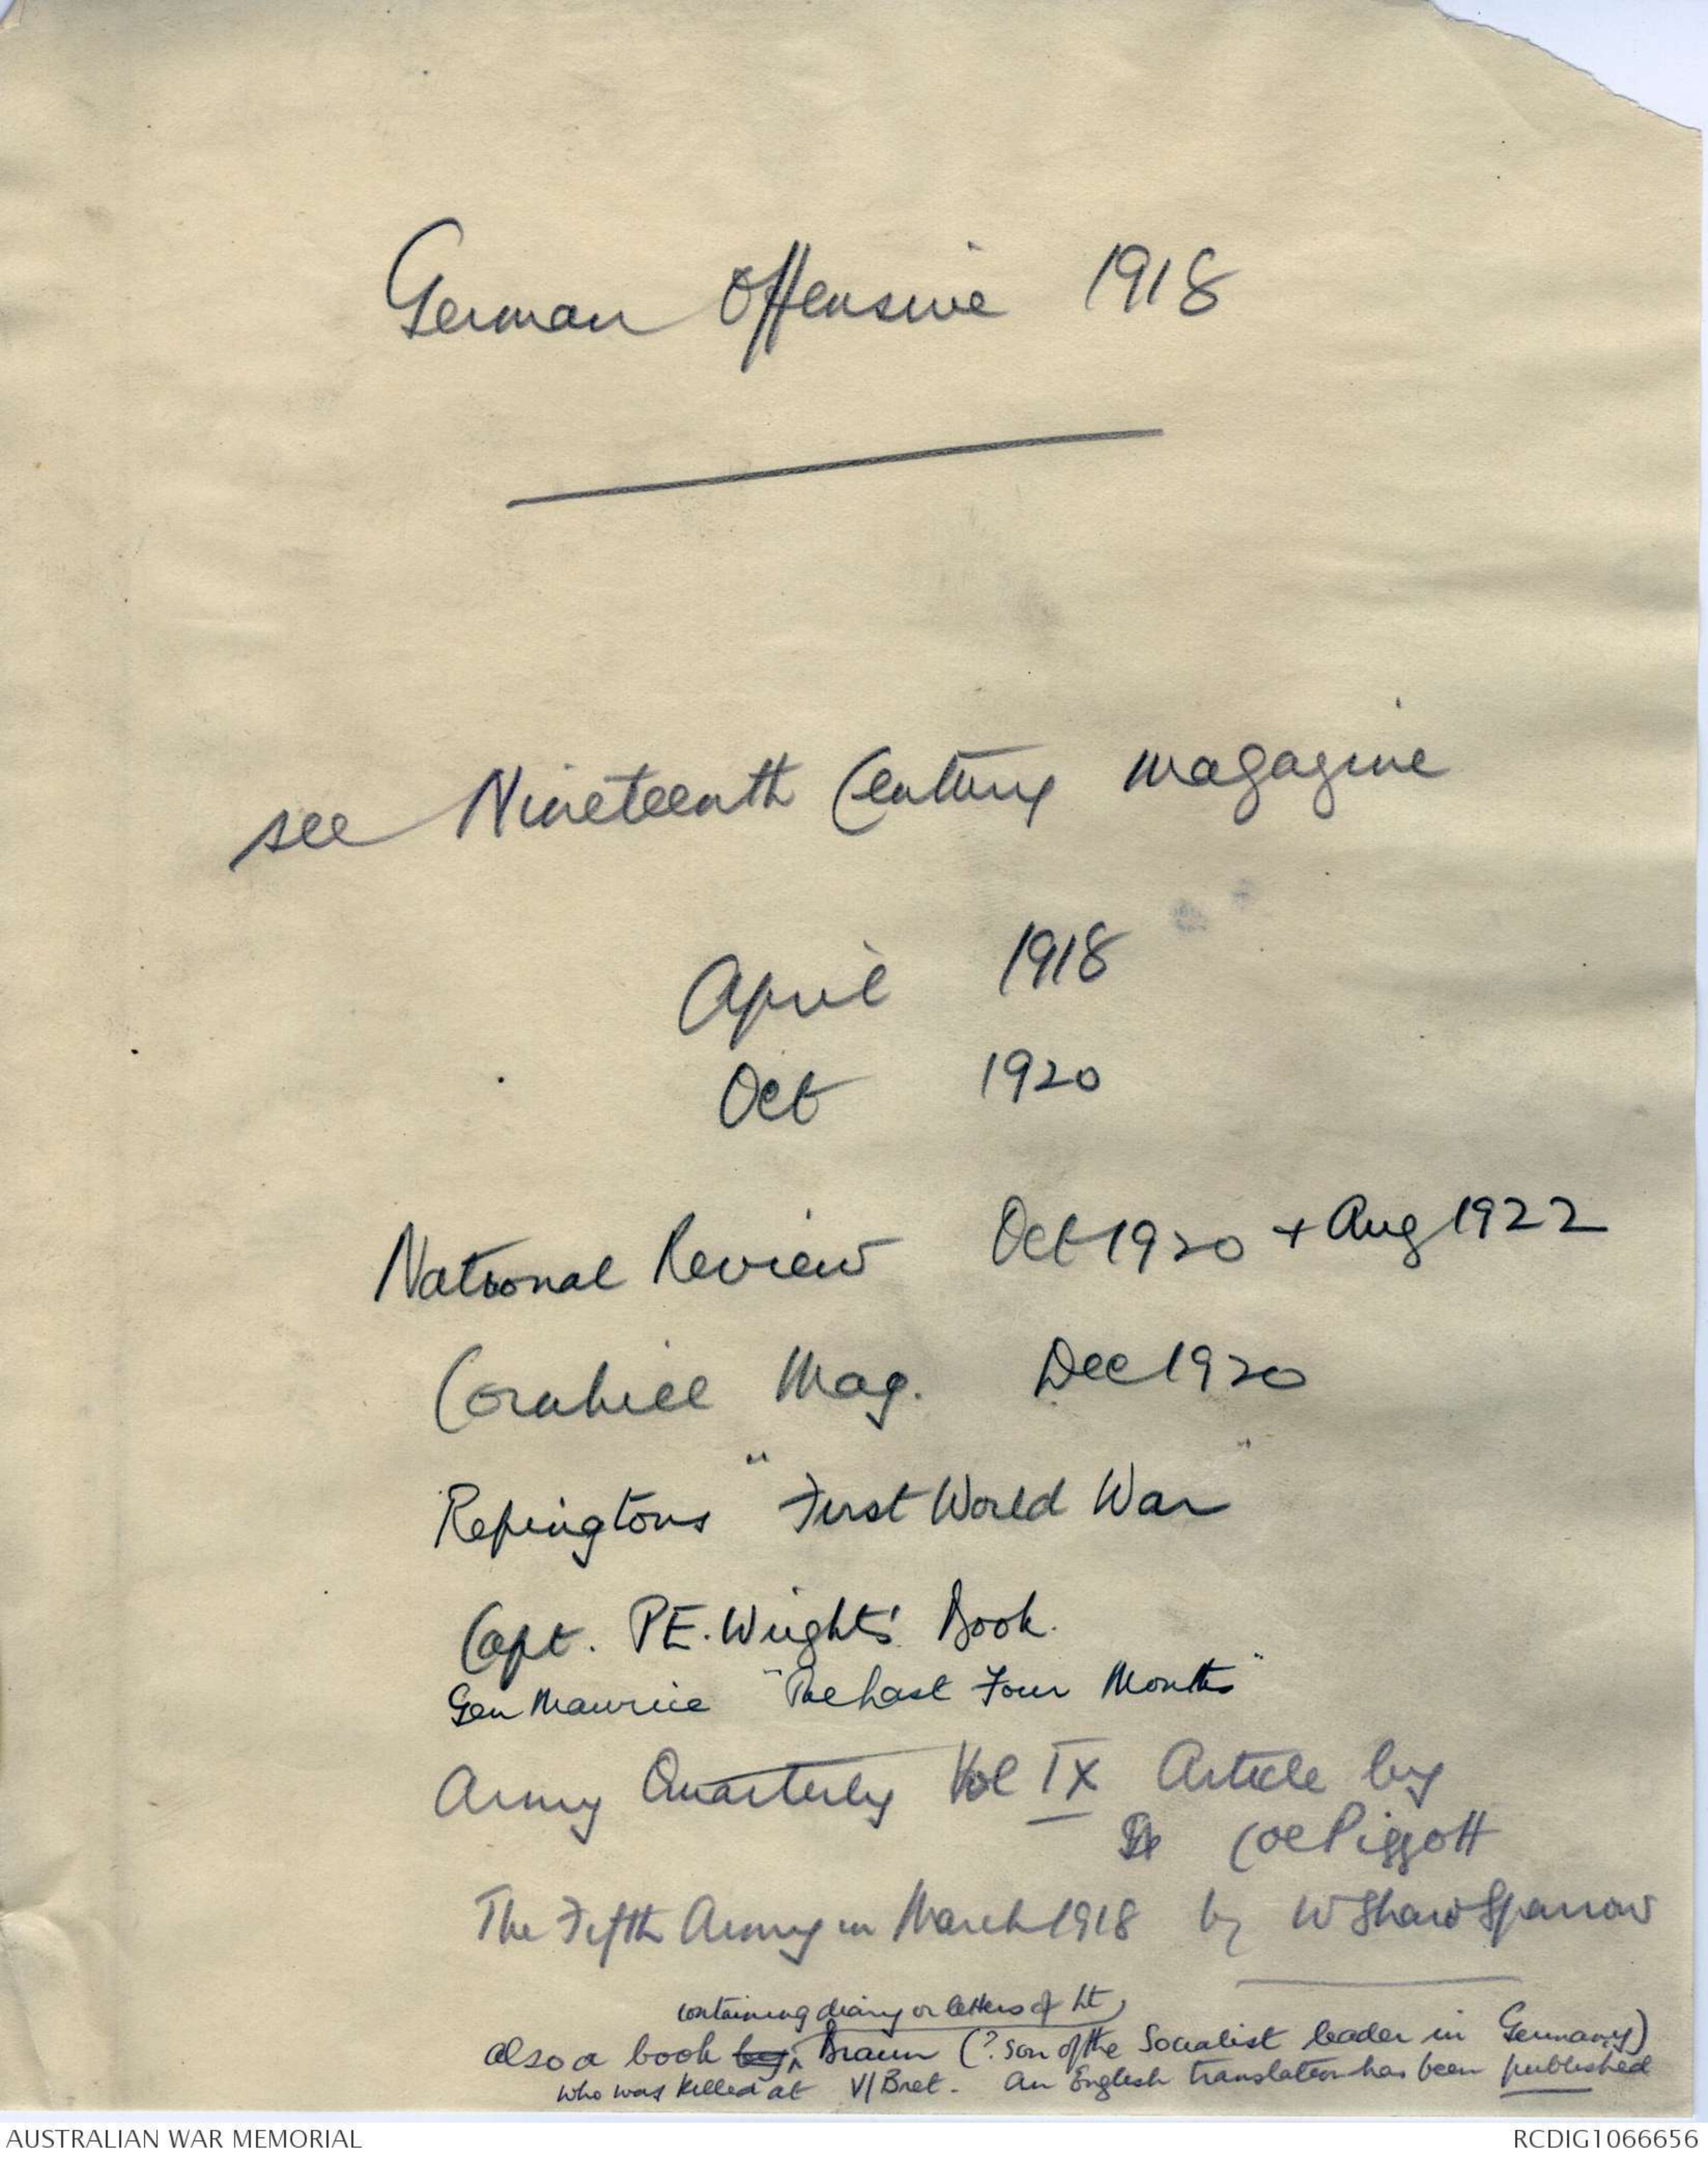 German Offensive 1918
see Nineteenth Century magazine
April 1918
Oct 1920
National Review Oct 1920 + Aug 1922
Cornhill Mag. Dec 1920
Repingtons "First World War"
Capt. P.E. Wright's Book.
Gen Maurice "The Last Four Months"
Army Quarterly Vol IX Article by
Col Piggott
The Fifth Army in March 1918 by W Shaw Sparrow
containing diary or letters of Lt
also a book by Braun (? son of the Socialist leader in Germany)
who was killed at V/Bret. An English translation has been published
AUSTRALIAN WAR MEMORIAL
RCDIG1066656